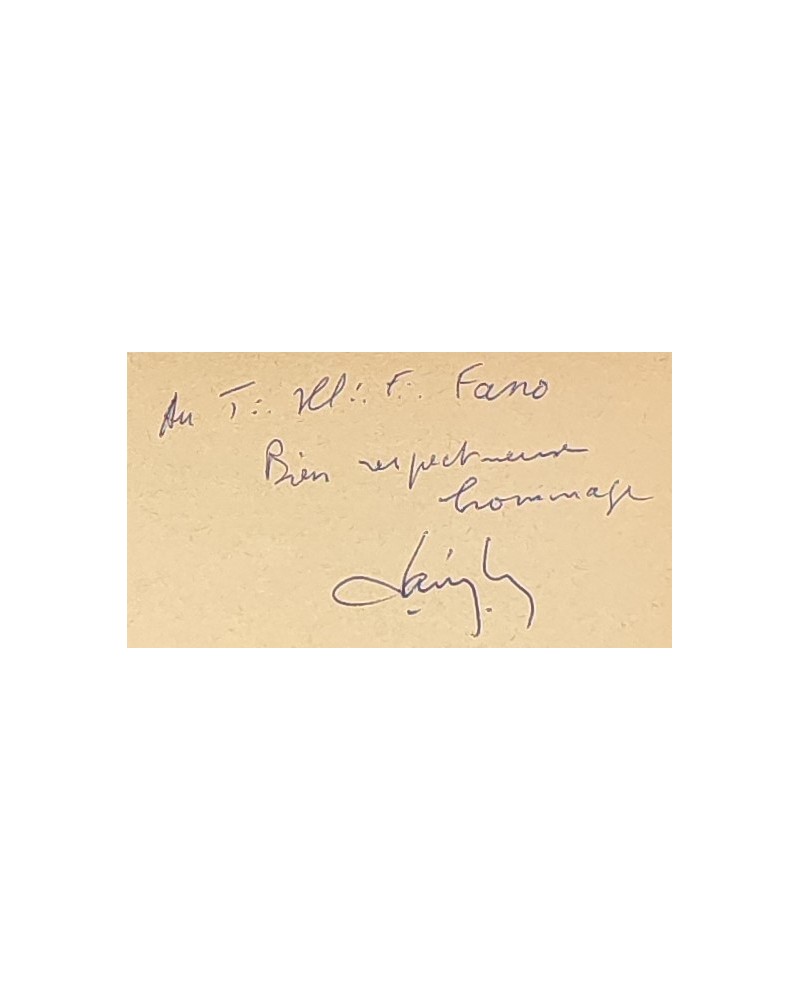 Au T∴ Ill∴ F∴ Fano
Bien respectueux
hommage